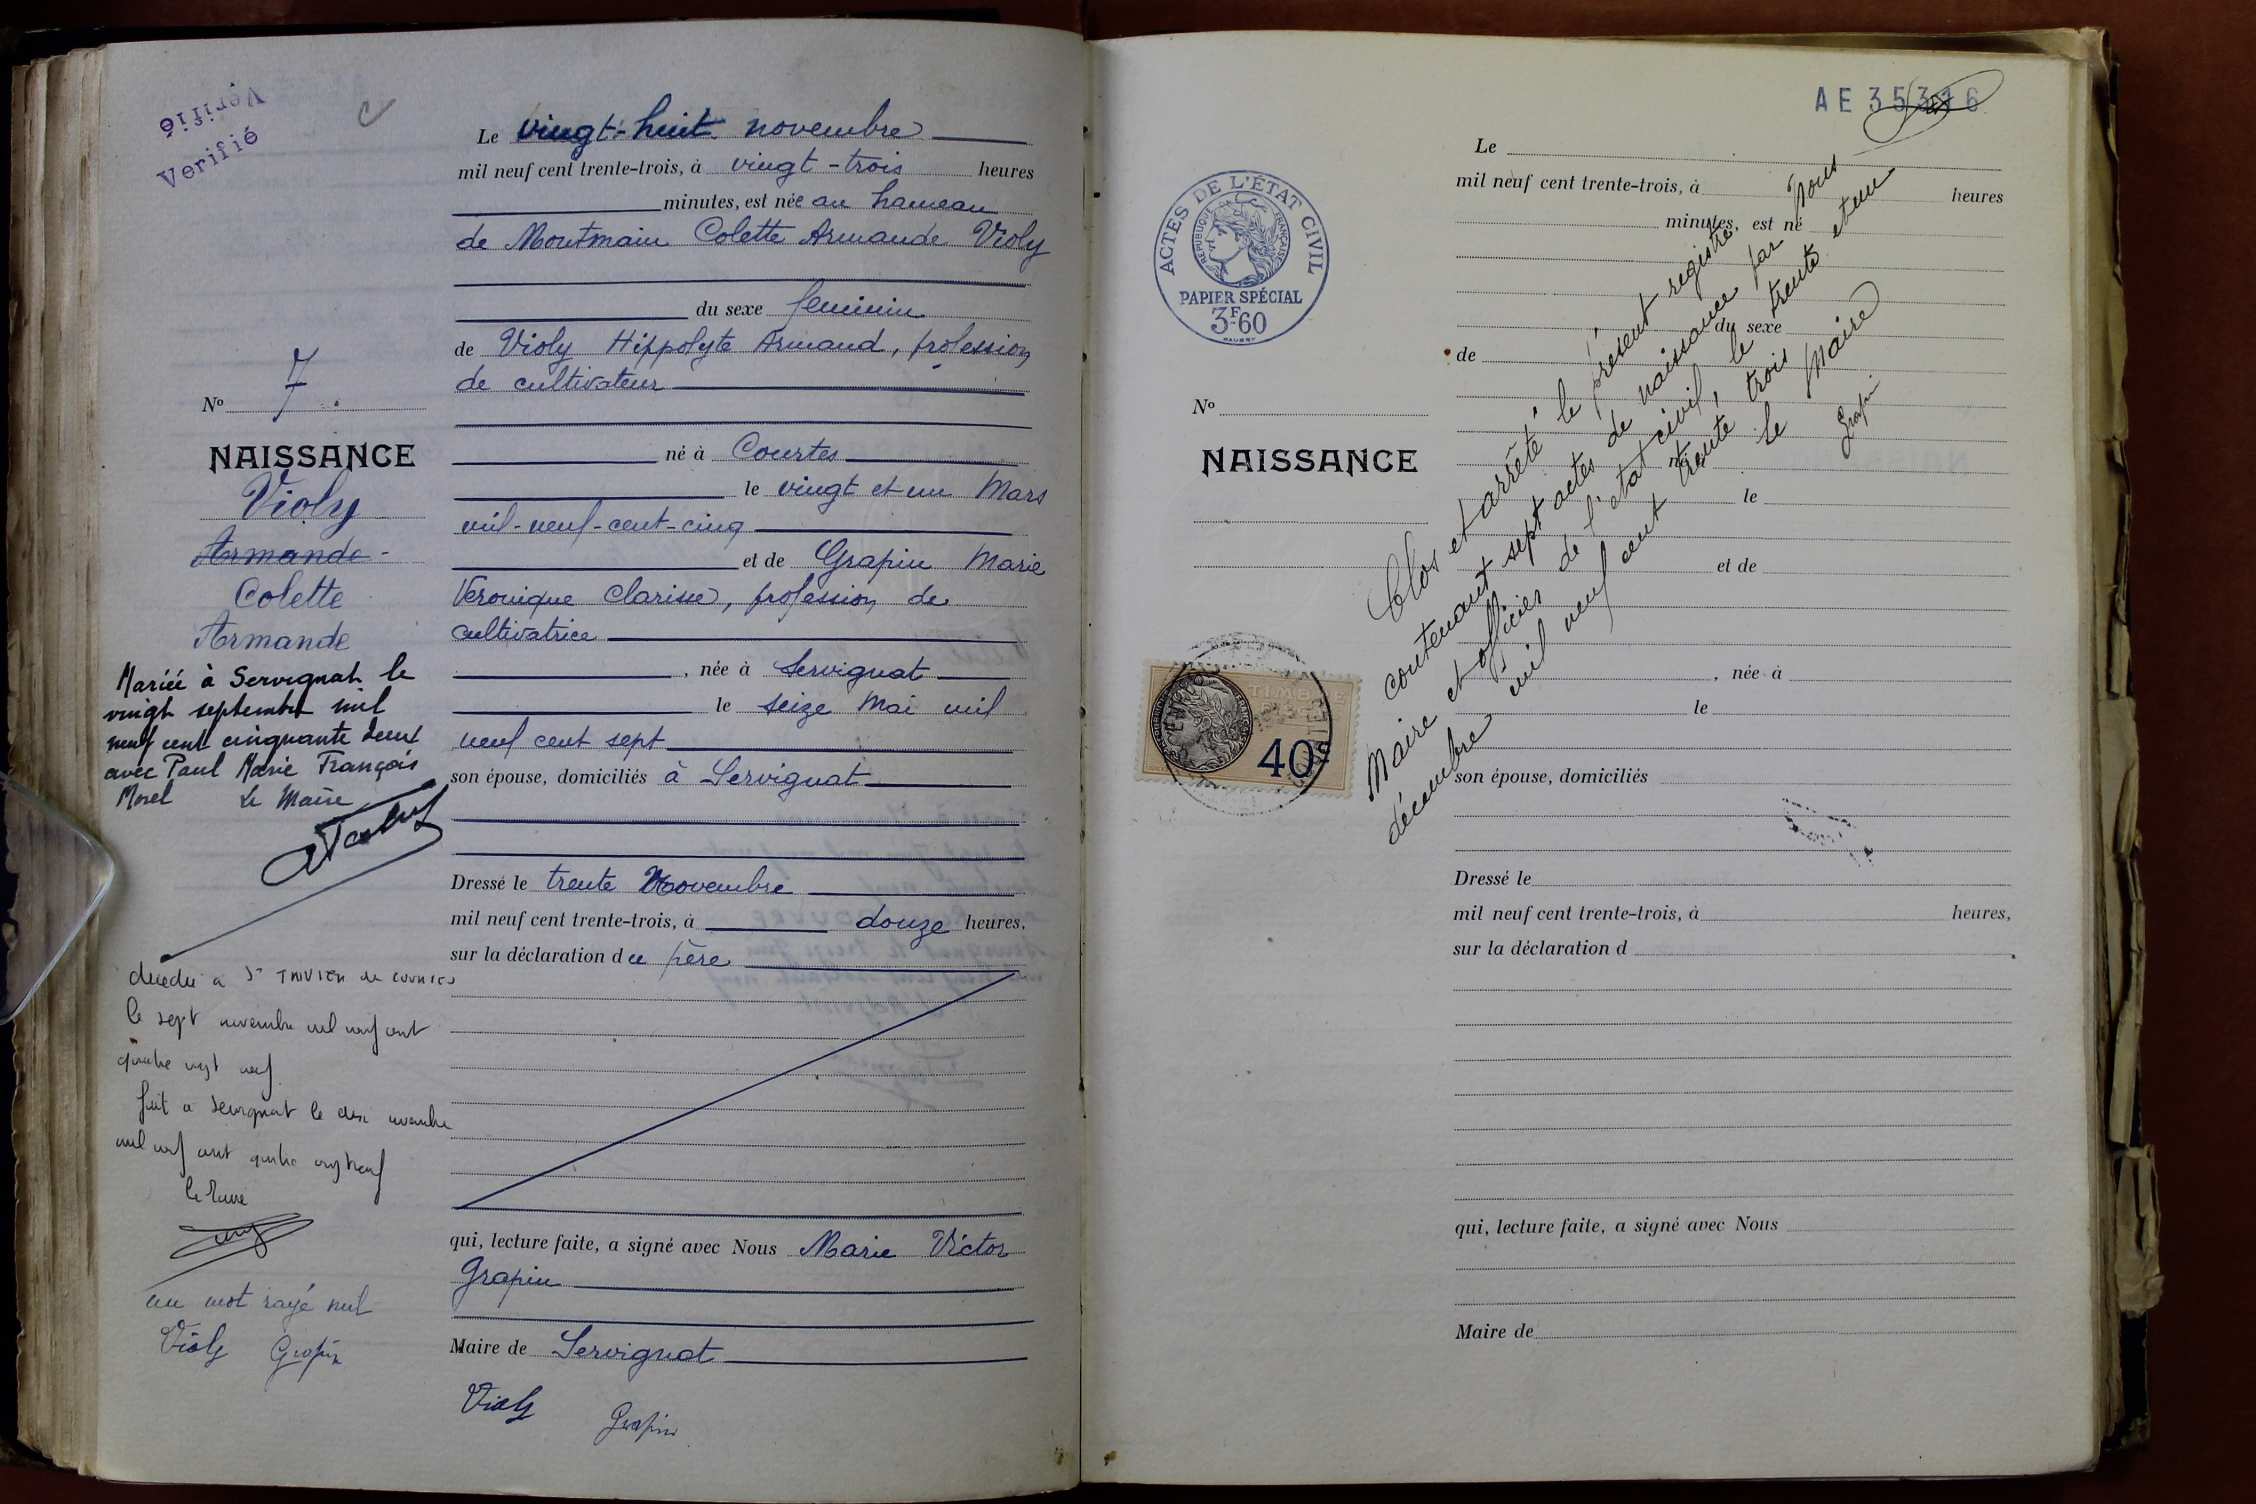 Verifié
Verifié
C
Nº 7.
NAISSANCE
Violy
Armande
Colette
Armande
Mariée à Servignat le
vingt septembre mil
neuf cent cinquante deux
avec Paul Marie François
Morel Le Maire
décédée à St TRIVIER de COURTES
le sept novembre mil neuf cent
quatre vingt neuf
fait à Servignat le dix novembre
mil neuf cent quatre vingt neuf
le Maire
un mot rayé nul
Violy Grapin
Le vingt-huit novembre
mil neuf cent trente-trois, à vingt-trois heures
minutes, est née au hameau
de Montmain Colette Armande Violy
du sexe féminin
de Violy Hippolyte Armand, profession
de cultivateur
né à Courtes
le vingt et un Mars
mil-neuf-cent-cinq
et de Grapin Marie
Veronique Clarisse, profession de
cultivatrice
, née à Servignat
le seize Mai mil
neuf cent sept
son épouse, domiciliés à Servignat
Dressé le trente Novembre
mil neuf cent trente-trois, à douze heures,
sur la déclaration du père
qui, lecture faite, a signé avec Nous Marie Victor
Grapin
Maire de Servignat
Violy Grapin
AE 35316
ACTES DE L'ÉTAT CIVIL
RÉPUBLIQUE FRANÇAISE
PAPIER SPÉCIAL
3F60
Nº
NAISSANCE
TIMBRE
40c
Le
mil neuf cent trente-trois, à heures
minutes, est né
du sexe
de
né à
le
et de
, née à
le
son épouse, domiciliés
Dressé le
mil neuf cent trente-trois, à heures,
sur la déclaration d
qui, lecture faite, a signé avec Nous
Maire de
Clos et arrêté le présent registre
contenant sept actes de naissance par Nous
Maire et officier de l'état civil, le trente et un
décembre mil neuf cent trente trois
le Maire
Grapin